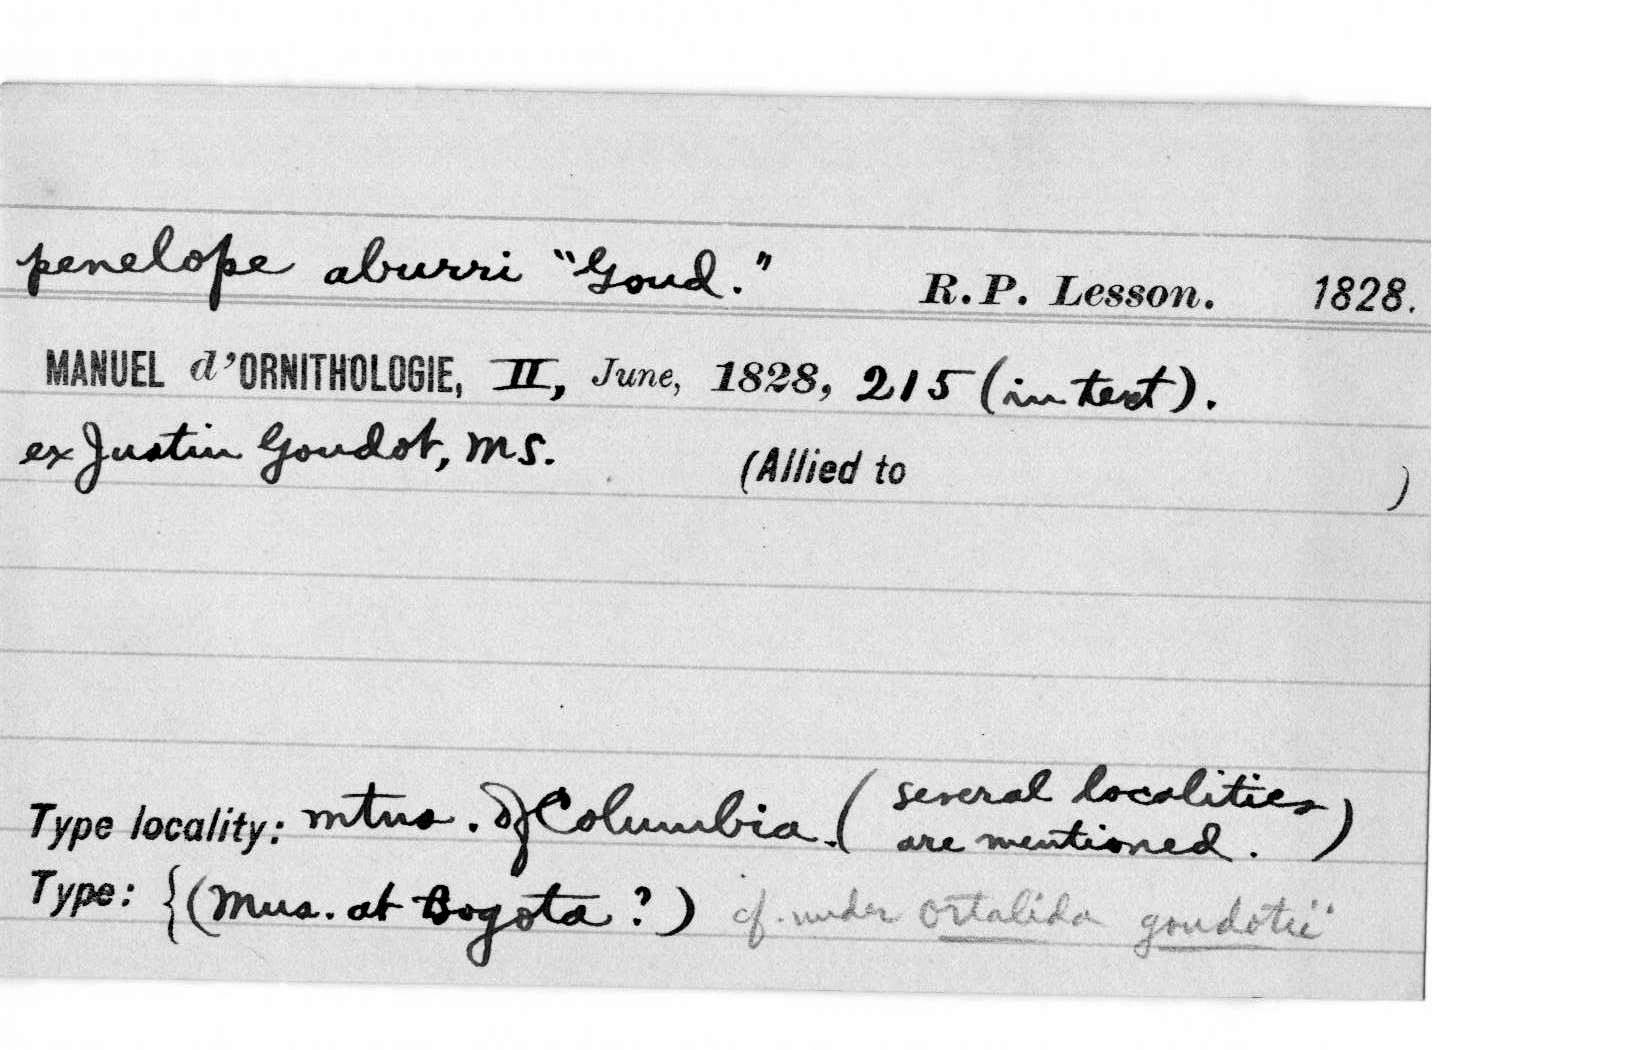 penelope aburri "Goud." R.P. Lesson. 1828.
MANUEL d'ORNITHOLOGIE, II, June, 1828, 215 (in text).
ex Justin Goudot, MS. (Allied to )
Type locality: mtns. of Columbia. (several localities are mentioned.)
Type: {(Mus. at Bogota?) cf. under Ortalida goudotii